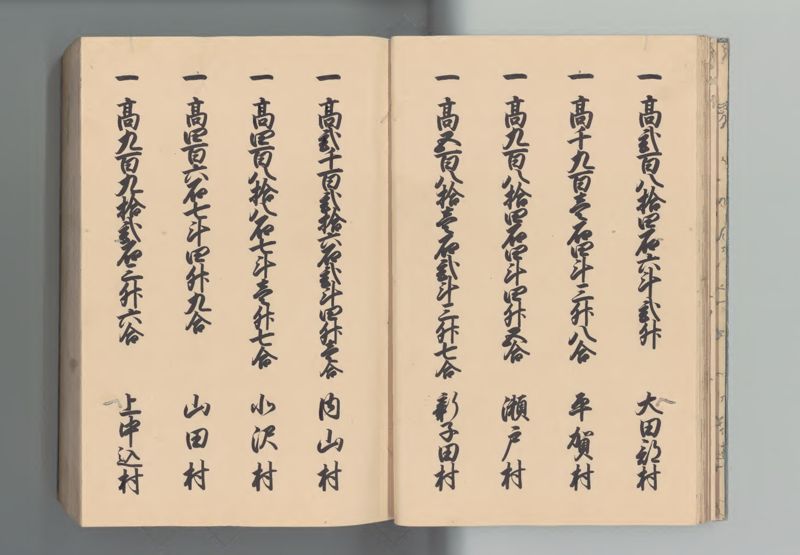 一 高弐百八拾四石六斗弐升 大田部村
一 高千九百壱石四斗三升八合 平賀村
一 高九百八拾四石四斗四升五合 瀬戸村
一 高五百八拾壱石弐斗三升七合 新子田村
一 高弐千百弐拾六石弐斗四升壱合 内山村
一 高四百八拾八石七斗壱升七合 小沢村
一 高四百六石七斗四升九合 山田村
一 高九百九拾弐石三升六合 上中込村